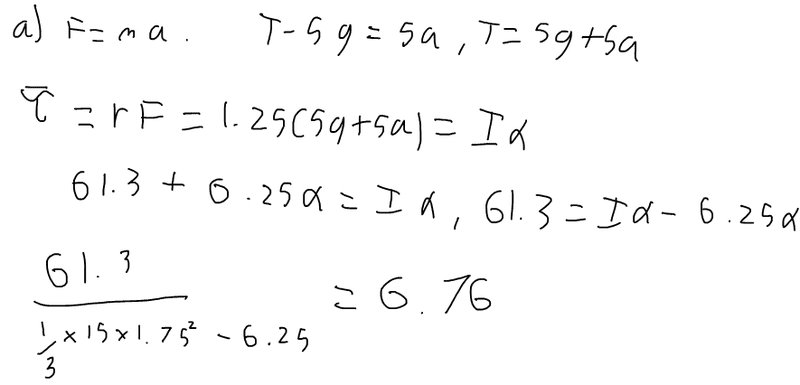 a) F = ma. T - 5g = 5a, T = 5g + 5a
τ = rF = 1.25(5g + 5a) = Iα
61.3 + 6.25α = Iα, 61.3 = Iα - 6.25α
61.3 / (1/3 × 15 × 1.75² - 6.25) = 6.76